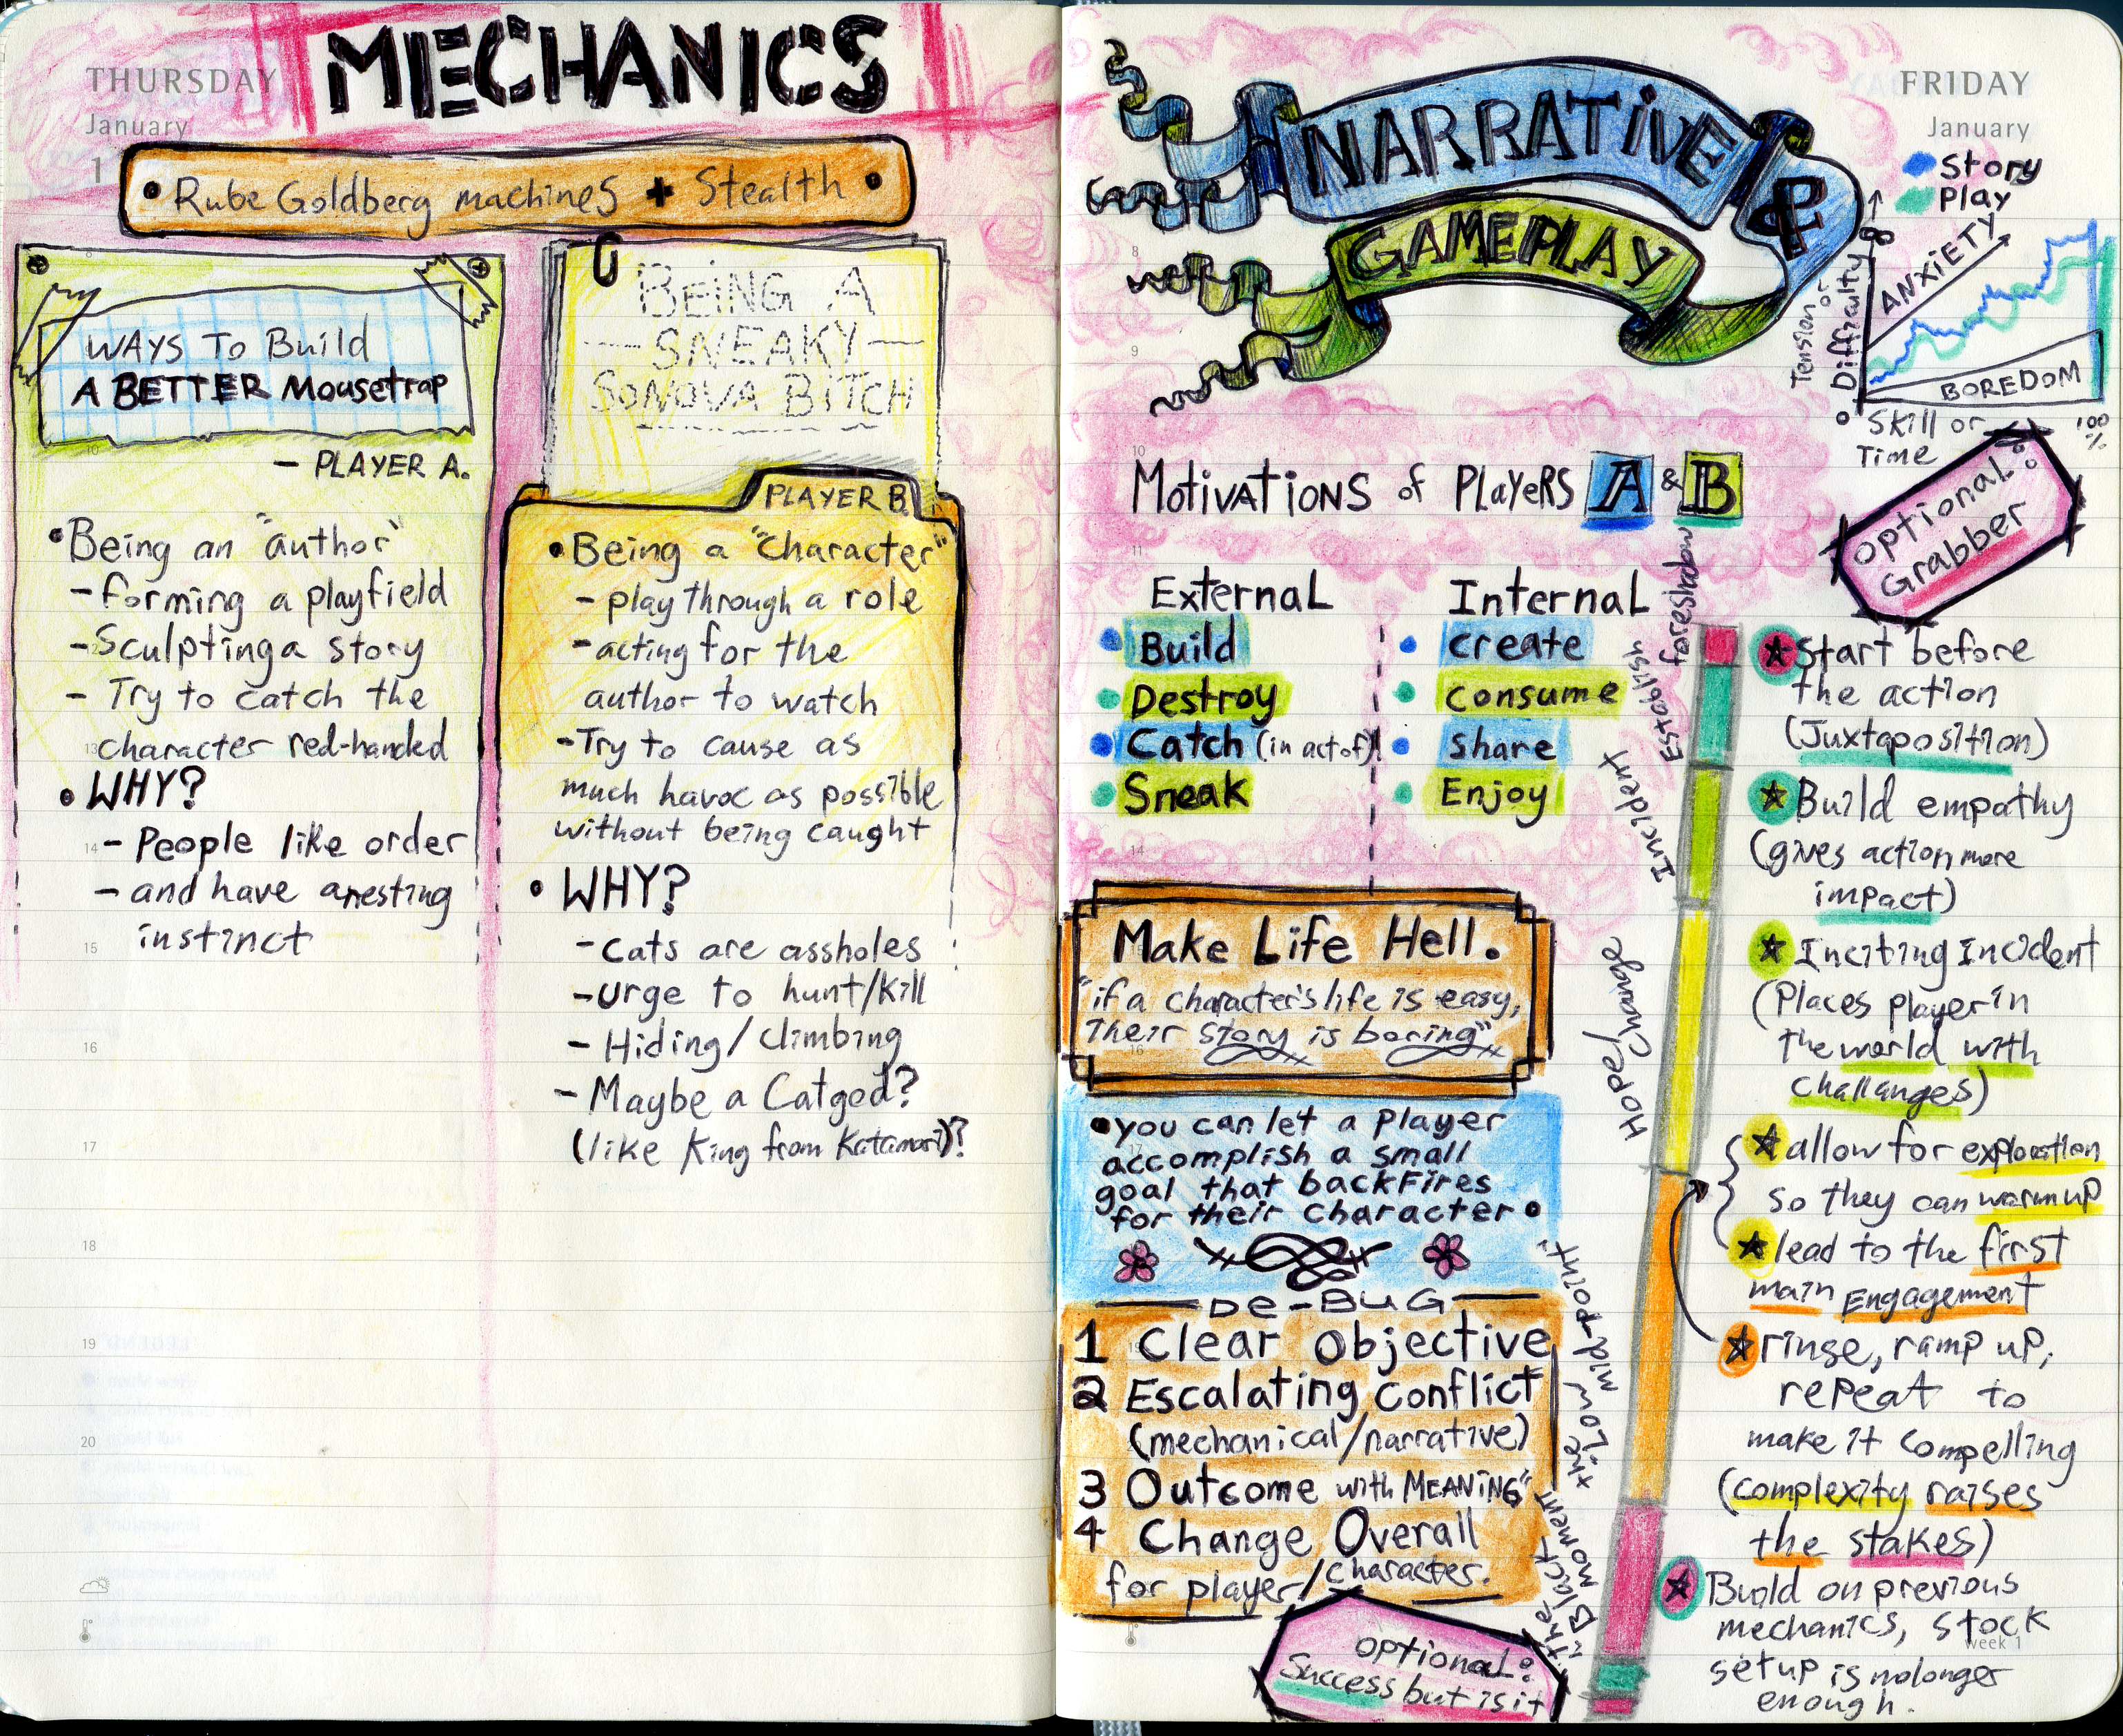 THURSDAY
January
1
MECHANICS
• Rube Goldberg machines + Stealth •
WAYS To Build
A BETTER Mousetrap
- PLAYER A.
• Being an "author"
- forming a playfield
- Sculpting a story
- Try to catch the
character red-handed
• WHY?
- People like order
- and have a nesting
instinct
BEING A
— SNEAKY —
SONOVA BITCH
PLAYER B.
• Being a "character"
- play through a role
- acting for the
author to watch
- Try to cause as
much havoc as possible
without being caught
• WHY?
- cats are assholes
- urge to hunt/kill
- Hiding/climbing
- Maybe a Catgod?
(like King from Katamari)?
8
9
10
11
12
13
14
15
16
17
18
19
20
FRIDAY
January
NARRATIVE
&
GAMEPLAY
Story
Play
∞
Tension or
Difficulty
ANXIETY
BOREDOM
0
Skill or
Time
100
%
Motivations of PLAYERS A & B
External
Build
Destroy
Catch (in act of)
Sneak
Internal
create
consume
share
Enjoy
Make Life Hell.
"if a character's life is easy,
their story is boring"
• you can let a player
accomplish a small
goal that backfires
for their character •
DE-BUG
1 Clear Objective
2 Escalating Conflict
(mechanical/narrative)
3 Outcome with MEANING"
4 Change Overall
for player/character.
optional:
Success but is it
optional:
Grabber
foreshadow
Establish
Incident
Hope/Change
the "Low Mid-point"
"The Black moment"
★ Start before
the action
(Juxtaposition)
★ Build empathy
(gives action more
impact)
★ Inciting Incident
(Places player in
the world with
challanges)
★ allow for exploration
so they can warm up
★ lead to the first
main Engagement
★ rinse, ramp up,
repeat to
make it compelling
(complexity raises
the stakes)
★ Build on previous
mechanics, stock
setup is no longer
enough.
week 1